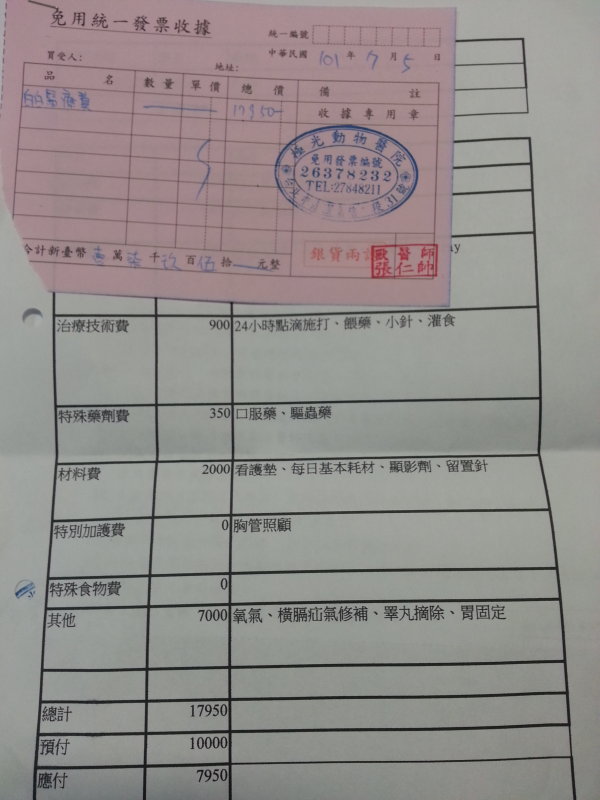 免用統一發票收據
統一編號
中華民國 101 年 7 月 5 日
買受人：
地址：
品名 數量 單價 總價 備註
白白醫療費 17950 收據專用章
極光動物醫院
免用發票編號
26378232
TEL:27848211
合計新臺幣 壹 萬 柒 千 玖 百 伍 拾 元整
銀貨兩
醫師
張仁帥
ay
治療技術費 900 24小時點滴施打、餵藥、小針、灌食
特殊藥劑費 350 口服藥、驅蟲藥
材料費 2000 看護墊、每日基本耗材、顯影劑、留置針
特別加護費 0 胸管照顧
特殊食物費 0
其他 7000 氧氣、橫膈疝氣修補、睪丸摘除、胃固定
總計 17950
預付 10000
應付 7950